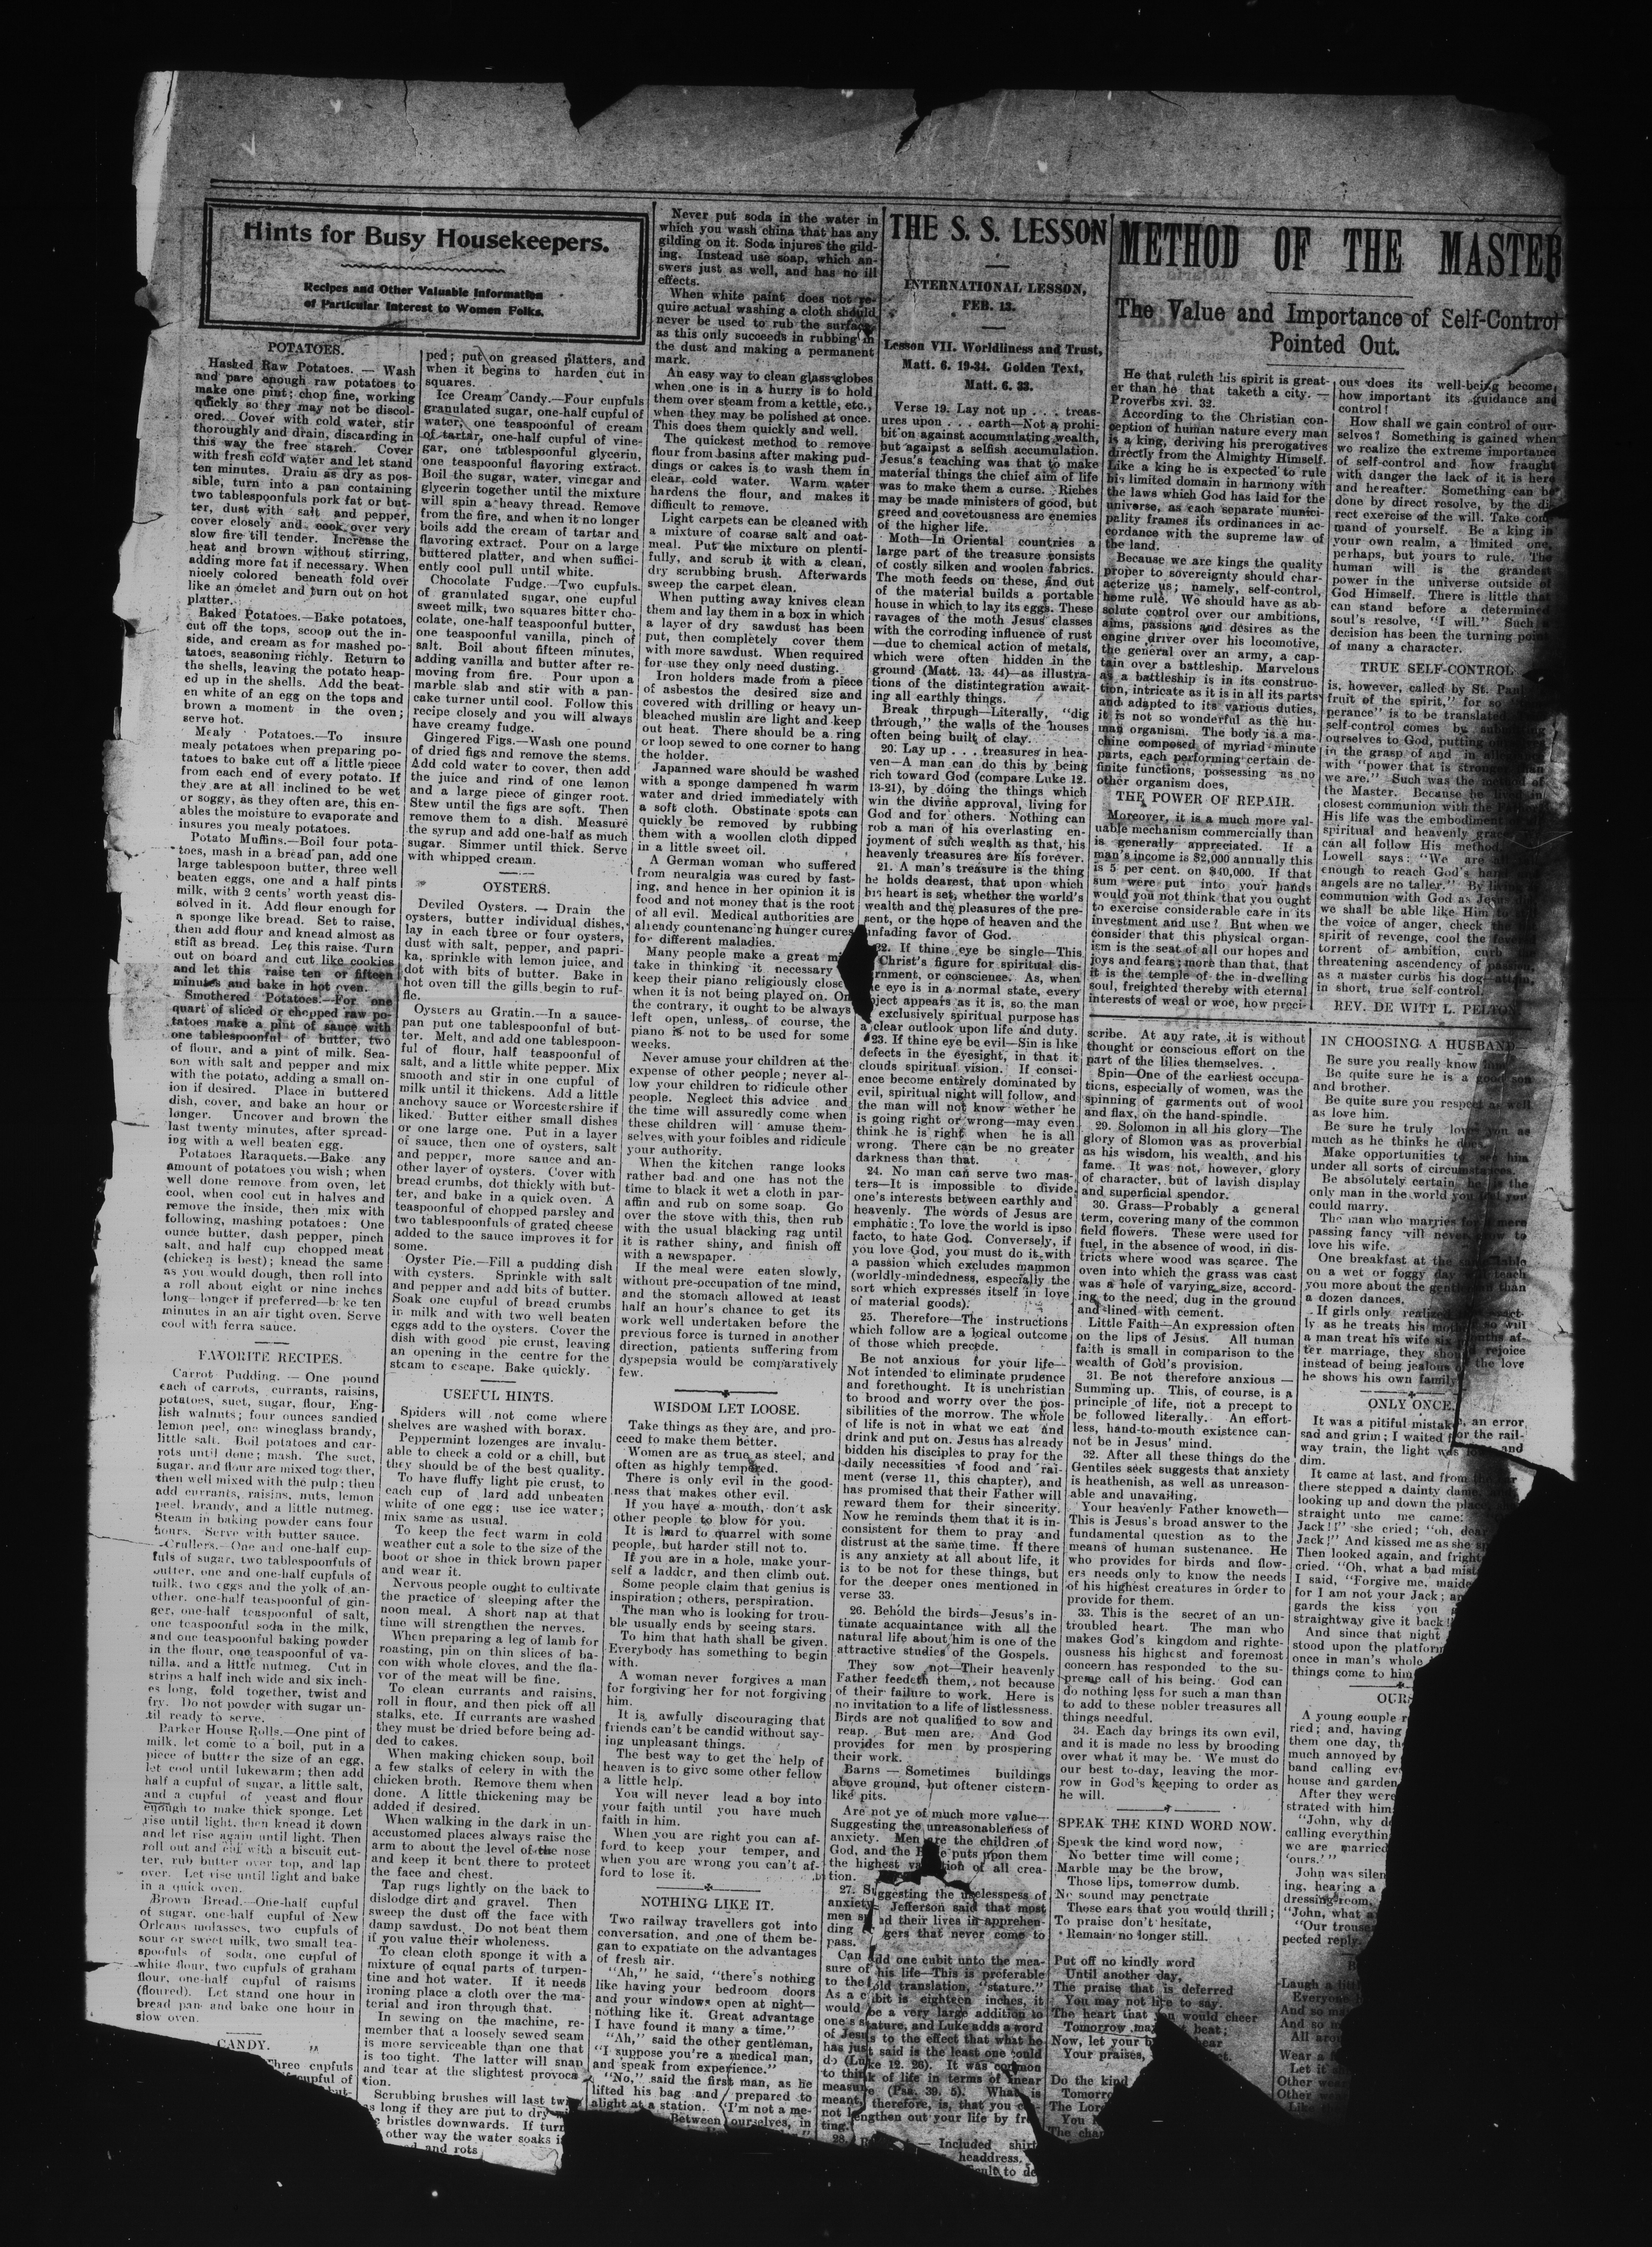 Hints for Busy Housekeepers.
Recipes and Other Valuable Information
of Particular Interest to Women Folks.
POTATOES.
Hashed Raw Potatoes. — Wash
and pare enough raw potatoes to
make one pint; chop fine, working
quickly so they may not be discol-
ored. Cover with cold water, stir
thoroughly and drain, discarding in
this way the free starch. Cover
with fresh cold water and let stand
ten minutes. Drain as dry as pos-
sible, turn into a pan containing
two tablespoonfuls pork fat or but-
ter, dust with salt and pepper,
cover closely and cook over very
slow fire till tender. Increase the
heat and brown without stirring,
adding more fat if necessary. When
nicely colored beneath fold over
like an omelet and turn out on hot
platter.
Baked Potatoes.—Bake potatoes,
cut off the tops, scoop out the in-
side, and cream as for mashed po-
tatoes, seasoning richly. Return to
the shells, leaving the potato heap-
ed up in the shells. Add the beat-
en white of an egg on the tops and
brown a moment in the oven;
serve hot.
Mealy Potatoes.—To insure
mealy potatoes when preparing po-
tatoes to bake cut off a little piece
from each end of every potato. If
they are at all inclined to be wet
or soggy, as they often are, this en-
ables the moisture to evaporate and
insures you mealy potatoes.
Potato Muffins.—Boil four pota-
toes, mash in a bread pan, add one
large tablespoon butter, three well
beaten eggs, one and a half pints
milk, with 2 cents' worth yeast dis-
solved in it. Add flour enough for
a sponge like bread. Set to raise,
then add flour and knead almost as
stiff as bread. Let this raise. Turn
out on board and cut like cookies
and let this raise ten or fifteen
minutes and bake in hot oven.
Smothered Potatoes.—For one
quart of sliced or chopped raw po-
tatoes make a pint of sauce with
one tablespoonful of butter, two
of flour, and a pint of milk. Sea-
son with salt and pepper and mix
with the potato, adding a small on-
ion if desired. Place in buttered
dish, cover, and bake an hour or
longer. Uncover and brown the
last twenty minutes, after spread-
ing with a well beaten egg.
Potatoes Raraquets.—Bake any
amount of potatoes you wish; when
well done remove from oven, let
cool, when cool cut in halves and
remove the inside, then mix with
following, mashing potatoes: One
ounce butter, dash pepper, pinch
salt, and half cup chopped meat
(chicken is best); knead the same
as you would dough, then roll into
a roll about eight or nine inches
long—longer if preferred—bake ten
minutes in an air tight oven. Serve
cool with ferra sauce.
FAVORITE RECIPES.
Carrot Pudding. — One pound
each of carrots, currants, raisins,
potatoes, suet, sugar, flour, Eng-
lish walnuts; four ounces sandied
lemon peel, one wineglass brandy,
little salt. Boil potatoes and car-
rots until done; mash. The suet,
sugar, and flour are mixed together,
then well mixed with the pulp; then
add currants, raisins, nuts, lemon
peel, brandy, and a little nutmeg.
Steam in baking powder cans four
hours. Serve with butter sauce.
Crullers.—One and one-half cup-
fuls of sugar, two tablespoonfuls of
butter, one and one-half cupfuls of
milk, two eggs and the yolk of an-
other, one-half teaspoonful of gin-
ger, one-half teaspoonful of salt,
one teaspoonful soda in the milk,
and one teaspoonful baking powder
in the flour, one teaspoonful of va-
nilla, and a little nutmeg. Cut in
strips a half inch wide and six inch-
es long, fold together, twist and
fry. Do not powder with sugar un-
til ready to serve.
Parker House Rolls.—One pint of
milk, let come to a boil, put in a
piece of butter the size of an egg,
let cool until lukewarm; then add
half a cupful of sugar, a little salt,
and a cupful of yeast and flour
enough to make thick sponge. Let
rise until light, then knead it down
and let rise again until light. Then
roll out and cut with a biscuit cut-
ter, rub butter over top, and lap
over. Let rise until light and bake
in a quick oven.
Brown Bread.—One-half cupful
of sugar, one-half cupful of New
Orleans molasses, two cupfuls of
sour or sweet milk, two small tea-
spoonfuls of soda, one cupful of
white flour, two cupfuls of graham
flour, one-half cupful of raisins
(floured). Let stand one hour in
bread pan and bake one hour in
slow oven.
CANDY.
Three cupfuls
cupful of
but-
ped; put on greased platters, and
when it begins to harden cut in
squares.
Ice Cream Candy.—Four cupfuls
granulated sugar, one-half cupful of
water, one teaspoonful of cream
of tartar, one-half cupful of vine-
gar, one tablespoonful glycerin,
one teaspoonful flavoring extract.
Boil the sugar, water, vinegar and
glycerin together until the mixture
will spin a heavy thread. Remove
from the fire, and when it no longer
boils add the cream of tartar and
flavoring extract. Pour on a large
buttered platter, and when suffici-
ently cool pull until white.
Chocolate Fudge.—Two cupfuls
of granulated sugar, one cupful
sweet milk, two squares bitter cho-
colate, one-half teaspoonful butter,
one teaspoonful vanilla, pinch of
salt. Boil about fifteen minutes,
adding vanilla and butter after re-
moving from fire. Pour upon a
marble slab and stir with a pan-
cake turner until cool. Follow this
recipe closely and you will always
have creamy fudge.
Gingered Figs.—Wash one pound
of dried figs and remove the stems.
Add cold water to cover, then add
the juice and rind of one lemon
and a large piece of ginger root.
Stew until the figs are soft. Then
remove them to a dish. Measure
the syrup and add one-half as much
sugar. Simmer until thick. Serve
with whipped cream.
OYSTERS.
Deviled Oysters. — Drain the
oysters, butter individual dishes,
lay in each three or four oysters,
dust with salt, pepper, and papri-
ka, sprinkle with lemon juice, and
dot with bits of butter. Bake in
hot oven till the gills begin to ruf-
fle.
Oysters au Gratin.—In a sauce-
pan put one tablespoonful of but-
ter. Melt, and add one tablespoon-
ful of flour, half teaspoonful of
salt, and a little white pepper. Mix
smooth and stir in one cupful of
milk until it thickens. Add a little
anchovy sauce or Worcestershire if
liked. Butter either small dishes
or one large one. Put in a layer
of sauce, then one of oysters, salt
and pepper, more sauce and an-
other layer of oysters. Cover with
bread crumbs, dot thickly with but-
ter, and bake in a quick oven. A
teaspoonful of chopped parsley and
two tablespoonfuls of grated cheese
added to the sauce improves it for
some.
Oyster Pie.—Fill a pudding dish
with oysters. Sprinkle with salt
and pepper and add bits of butter.
Soak one cupful of bread crumbs
in milk and with two well beaten
eggs add to the oysters. Cover the
dish with good pie crust, leaving
an opening in the centre for the
steam to escape. Bake quickly.
USEFUL HINTS.
Spiders will not come where
shelves are washed with borax.
Peppermint lozenges are invalu-
able to check a cold or a chill, but
they should be of the best quality.
To have fluffy light pie crust, to
each cup of lard add unbeaten
white of one egg; use ice water;
mix same as usual.
To keep the feet warm in cold
weather cut a sole to the size of the
boot or shoe in thick brown paper
and wear it.
Nervous people ought to cultivate
the practice of sleeping after the
noon meal. A short nap at that
time will strengthen the nerves.
When preparing a leg of lamb for
roasting, pin on thin slices of ba-
con with whole cloves, and the fla-
vor of the meat will be fine.
To clean currants and raisins,
roll in flour, and then pick off all
stalks, etc. If currants are washed
they must be dried before being ad-
ded to cakes.
When making chicken soup, boil
a few stalks of celery in with the
chicken broth. Remove them when
done. A little thickening may be
added if desired.
When walking in the dark in un-
accustomed places always raise the
arm to about the level of the nose
and keep it bent there to protect
the face and chest.
Tap rugs lightly on the back to
dislodge dirt and gravel. Then
sweep the dust off the face with
damp sawdust. Do not beat them
if you value their wholeness.
To clean cloth sponge it with a
mixture of equal parts of turpen-
tine and hot water. If it needs
ironing place a cloth over the ma-
terial and iron through that.
In sewing on the machine, re-
member that a loosely sewed seam
is more serviceable than one that
is too tight. The latter will snap
and tear at the slightest provoca-
tion.
Scrubbing brushes will last
as long if they are put to dry
bristles downwards. If turn
other way the water soaks
and rots
Never put soda in the water in
which you wash china that has any
gilding on it. Soda injures the gild-
ing. Instead use soap, which an-
swers just as well, and has no ill
effects.
When white paint does not re-
quire actual washing a cloth should
never be used to rub the surface
as this only succeeds in rubbing in
the dust and making a permanent
mark.
An easy way to clean glass globes
when one is in a hurry is to hold
them over steam from a kettle, etc.,
when they may be polished at once.
This does them quickly and well.
The quickest method to remove
flour from basins after making pud-
dings or cakes is to wash them in
clear, cold water. Warm water
hardens the flour, and makes it
difficult to remove.
Light carpets can be cleaned with
a mixture of coarse salt and oat-
meal. Put the mixture on plenti-
fully, and scrub it with a clean,
dry scrubbing brush. Afterwards
sweep the carpet clean.
When putting away knives clean
them and lay them in a box in which
a layer of dry sawdust has been
put, then completely cover them
with more sawdust. When required
for use they only need dusting.
Iron holders made from a piece
of asbestos the desired size and
covered with drilling or heavy un-
bleached muslin are light and keep
out heat. There should be a ring
or loop sewed to one corner to hang
the holder.
Japanned ware should be washed
with a sponge dampened in warm
water and dried immediately with
a soft cloth. Obstinate spots can
quickly be removed by rubbing
them with a woollen cloth dipped
in a little sweet oil.
A German woman who suffered
from neuralgia was cured by fast-
ing, and hence in her opinion it is
food and not money that is the root
of all evil. Medical authorities are
already countenancing hunger cures
for different maladies.
Many people make a great mi
take in thinking it necessary
keep their piano religiously close
when it is not being played on. On
the contrary, it ought to be always
left open, unless, of course, the
piano is not to be used for some
weeks.
Never amuse your children at the
expense of other people; never al-
low your children to ridicule other
people. Neglect this advice and
the time will assuredly come when
these children will amuse them-
selves with your foibles and ridicule
your authority.
When the kitchen range looks
rather bad and one has not the
time to black it wet a cloth in par-
affin and rub on some soap. Go
over the stove with this, then rub
with the usual blacking rag until
it is rather shiny, and finish off
with a newspaper.
If the meal were eaten slowly,
without pre-occupation of tne mind,
and the stomach allowed at least
half an hour's chance to get its
work well undertaken before the
previous force is turned in another
direction, patients suffering from
dyspepsia would be comparatively
few.
WISDOM LET LOOSE.
Take things as they are, and pro-
ceed to make them better.
Women are as true as steel, and
often as highly tempered.
There is only evil in the good-
ness that makes other evil.
If you have a mouth, don't ask
other people to blow for you.
It is hard to quarrel with some
people, but harder still not to.
If you are in a hole, make your-
self a ladder, and then climb out.
Some people claim that genius is
inspiration; others, perspiration.
The man who is looking for trou-
ble usually ends by seeing stars.
To him that hath shall be given.
Everybody has something to begin
with.
A woman never forgives a man
for forgiving her for not forgiving
him.
It is awfully discouraging that
friends can't be candid without say-
ing unpleasant things.
The best way to get the help of
heaven is to give some other fellow
a little help.
You will never lead a boy into
your faith until you have much
faith in him.
When you are right you can af-
ford to keep your temper, and
when you are wrong you can't af-
ford to lose it.
NOTHING LIKE IT.
Two railway travellers got into
conversation, and one of them be-
gan to expatiate on the advantages
of fresh air.
"Ah," he said, "there's nothing
like having your bedroom doors
and your windows open at night—
nothing like it. Great advantage
I have found it many a time."
"Ah," said the other gentleman,
"I suppose you're a medical man,
and speak from experience."
"No," said the first man, as he
lifted his bag and prepared to
alight at a station. "I'm not a me-
Between ourselves, in
THE S. S. LESSON
INTERNATIONAL LESSON,
FEB. 13.
Lesson VII. Worldliness and Trust,
Matt. 6. 19-34. Golden Text,
Matt. 6. 33.
Verse 19. Lay not up . . . treas-
ures upon . . . earth—Not a prohi-
bition against accumulating wealth,
but against a selfish accumulation.
Jesus's teaching was that to make
material things the chief aim of life
was to make them a curse. Riches
may be made ministers of good, but
greed and covetousness are enemies
of the higher life.
Moth—In Oriental countries a
large part of the treasure consists
of costly silken and woolen fabrics.
The moth feeds on these, and out
of the material builds a portable
house in which to lay its eggs. These
ravages of the moth Jesus classes
with the corroding influence of rust
—due to chemical action of metals,
which were often hidden in the
ground (Matt. 13. 44)—as illustra-
tions of the distintegration await-
ing all earthly things.
Break through—Literally, "dig
through," the walls of the houses
often being built of clay.
20. Lay up . . . treasures in hea-
ven—A man can do this by being
rich toward God (compare Luke 12.
13-21), by doing the things which
win the divine approval, living for
God and for others. Nothing can
rob a man of his everlasting en-
joyment of such wealth as that, his
heavenly treasures are his forever.
21. A man's treasure is the thing
he holds dearest, that upon which
his heart is set, whether the world's
wealth and the pleasures of the pre-
sent, or the hope of heaven and the
unfading favor of God.
22. If thine eye be single—This
Christ's figure for spiritual dis-
rnment, or conscience. As, when
e eye is in a normal state, every
ject appears as it is, so the man
exclusively spiritual purpose has
a clear outlook upon life and duty.
23. If thine eye be evil—Sin is like
defects in the eyesight, in that it
clouds spiritual vision. If consci-
ence become entirely dominated by
evil, spiritual night will follow, and
the man will not know wether he
is going right or wrong—may even
think he is right when he is all
wrong. There can be no greater
darkness than that.
24. No man can serve two mas-
ters—It is impossible to divide
one's interests between earthly and
heavenly. The words of Jesus are
emphatic: To love the world is ipso
facto, to hate God. Conversely, if
you love God, you must do it with
a passion which excludes mammon
(worldly-mindedness, especially the
sort which expresses itself in love
of material goods).
25. Therefore—The instructions
which follow are a logical outcome
of those which precede.
Be not anxious for your life—
Not intended to eliminate prudence
and forethought. It is unchristian
to brood and worry over the pos-
sibilities of the morrow. The whole
of life is not in what we eat and
drink and put on. Jesus has already
bidden his disciples to pray for the
daily necessities of food and rai-
ment (verse 11, this chapter), and
has promised that their Father will
reward them for their sincerity.
Now he reminds them that it is in-
consistent for them to pray and
distrust at the same time. If there
is any anxiety at all about life, it
is to be not for these things, but
for the deeper ones mentioned in
verse 33.
26. Behold the birds—Jesus's in-
timate acquaintance with all the
natural life about him is one of the
attractive studies of the Gospels.
They sow not—Their heavenly
Father feedeth them, not because
of their failure to work. Here is
no invitation to a life of listlessness.
Birds are not qualified to sow and
reap. But men are. And God
provides for men by prospering
their work.
Barns — Sometimes buildings
above ground, but oftener cistern-
like pits.
Are not ye of much more value—
Suggesting the unreasonableness of
anxiety. Men are the children of
God, and the puts upon them
the highest of all crea-
tion.
27. Suggesting the uselessness of
anxiety Jefferson said that most
men their lives in apprehen-
ding gers that never come to
pass.
Can add one cubit unto the mea-
sure of his life—This is preferable
to the old translation, "stature."
As a c bit is eighteen inches, it
would be a very large addition to
one's stature, and Luke adds a word
of Jesus to the effect that what he
has just said is the least one could
do (Luke 12. 26). It was common
to think of life in terms of linear
measure (Psa. 39. 5). What is
meant, therefore, is, that you can
not lengthen out your life by fre
ting.
28. — Included shirt
headdress.
to de
METHOD OF THE MASTER
The Value and Importance of Self-Control
Pointed Out.
He that ruleth his spirit is great-
er than he that taketh a city. —
Proverbs xvi. 32.
According to the Christian con-
ception of human nature every man
is a king, deriving his prerogatives
directly from the Almighty Himself.
Like a king he is expected to rule
his limited domain in harmony with
the laws which God has laid for the
universe, as each separate munici-
pality frames its ordinances in ac-
cordance with the supreme law of
the land.
Because we are kings the quality
proper to sovereignty should char-
acterize us; namely, self-control,
home rule. We should have as ab-
solute control over our ambitions,
aims, passions and desires as the
engine driver over his locomotive,
the general over an army, a cap-
tain over a battleship. Marvelous
as a battleship is in its construc-
tion, intricate as it is in all its parts
and adapted to its various duties,
it is not so wonderful as the hu-
man organism. The body is a ma-
chine composed of myriad minute
parts, each performing certain de-
finite functions, possessing as no
other organism does,
THE POWER OF REPAIR.
Moreover, it is a much more val-
uable mechanism commercially than
is generally appreciated. If a
man's income is $2,000 annually this
is 5 per cent. on $40,000. If that
sum were put into your hands
would you not think that you ought
to exercise considerable care in its
investment and use? But when we
consider that this physical organ-
ism is the seat of all our hopes and
joys and fears; more than that, that
it is the temple of the in-dwelling
soul, freighted thereby with eternal
interests of weal or woe, how preci-
ous does its well-being become,
how important its guidance and
control!
How shall we gain control of our-
selves? Something is gained when
we realize the extreme importance
of self-control and how fraught
with danger the lack of it is here
and hereafter. Something can be
done by direct resolve, by the di-
rect exercise of the will. Take com-
mand of yourself. Be a king in
your own realm, a limited one,
perhaps, but yours to rule. The
human will is the grandest
power in the universe outside of
God Himself. There is little that
can stand before a determined
soul's resolve, "I will." Such a
decision has been the turning point
of many a character.
TRUE SELF-CONTROL
is, however, called by St. Paul
fruit of the spirit," for so
perance" is to be translated
self-control comes by
ourselves to God, putting
in the grasp of and in
with "power that is stronger than
we are." Such was the method of
the Master. Because he lived in
closest communion with the
His life was the embodiment
spiritual and heavenly
can all follow His method.
Lowell says: "We are
enough to reach God's hand
angels are no taller." By living
communion with God as Jesus did
we shall be able like Him to
the voice of anger, check the
spirit of revenge, cool the
torrent of ambition, curb
threatening ascendency of passion,
as a master curbs his dog—attain,
in short, true self-control.
REV. DE WITT L. PELTON
scribe. At any rate, it is without
thought or conscious effort on the
part of the lilies themselves.
Spin—One of the earliest occupa-
tions, especially of women, was the
spinning of garments out of wool
and flax, on the hand-spindle.
29. Solomon in all his glory—The
glory of Slomon was as proverbial
as his wisdom, his wealth, and his
fame. It was not, however, glory
of character, but of lavish display
and superficial spendor.
30. Grass—Probably a general
term, covering many of the common
field flowers. These were used for
fuel, in the absence of wood, in dis-
tricts where wood was scarce. The
oven into which the grass was cast
was a hole of varying size, accord-
ing to the need, dug in the ground
and lined with cement.
Little Faith—An expression often
on the lips of Jesus. All human
faith is small in comparison to the
wealth of God's provision.
31. Be not therefore anxious —
Summing up. This, of course, is a
principle of life, not a precept to
be followed literally. An effort-
less, hand-to-mouth existence can-
not be in Jesus' mind.
32. After all these things do the
Gentiles seek suggests that anxiety
is heathenish, as well as unreason-
able and unavailing.
Your heavenly Father knoweth—
This is Jesus's broad answer to the
fundamental question as to the
means of human sustenance. He
who provides for birds and flow-
ers needs only to know the needs
of his highest creatures in order to
provide for them.
33. This is the secret of an un-
troubled heart. The man who
makes God's kingdom and righte-
ousness his highest and foremost
concern has responded to the su-
preme call of his being. God can
do nothing less for such a man than
to add to these nobler treasures all
things needful.
34. Each day brings its own evil,
and it is made no less by brooding
over what it may be. We must do
our best to-day, leaving the mor-
row in God's keeping to order as
he will.
SPEAK THE KIND WORD NOW.
Speak the kind word now,
No better time will come;
Marble may be the brow,
Those lips, tomorrow dumb.
No sound may penetrate
Those ears that you would thrill;
To praise don't hesitate,
Remain no longer still.
Put off no kindly word
Until another day,
The praise that is deferred
You may not like to say.
The heart that you would cheer
Tomorrow may beat;
Now, let your ear
Your praises,
Do the kind
Tomorro
The Lord
You
The chan
IN CHOOSING A HUSBAND—
Be sure you really know him.
Be quite sure he is a good son
and brother.
Be quite sure you respect as well
as love him.
Be sure he truly loves you as
much as he thinks he does.
Make opportunities to see him
under all sorts of circumstances.
Be absolutely certain he is the
only man in the world you feel you
could marry.
The man who marries for a mere
passing fancy will never grow to
love his wife.
One breakfast at the same table
on a wet or foggy day will teach
you more about the gentleman than
a dozen dances.
If girls only realized that exact-
ly as he treats his mother so will
a man treat his wife six months af-
ter marriage, they should rejoice
instead of being jealous of the love
he shows his own family.
ONLY ONCE.
It was a pitiful mistake, an error
sad and grim; I waited for the rail-
way train, the light was low and
dim.
It came at last, and from the car
there stepped a dainty dame, and
looking up and down the place,
straight unto me came:
Jack!!" she cried; "oh, dear
Jack!" And kissed me as she sp
Then looked again, and fright
cried. "Oh, what a bad mist
I said, "Forgive me, maide
for I am not your Jack; an
gards the kiss you g
straightway give it back!
And since that night
stood upon the platform
once in man's whole
things come to him
OURS
A young couple
ried; and, having
them one day, th
much annoyed by
band calling eve
house and garden
After they were
strated with him
"John, why do
calling everythin
we are married
'ours.'"
John was silen
ing, hearing a
dressing-room,
"John, what a
"Our trouse
pected reply.
Laugh a litt
Everyone
And so ma
And so m
All arou
Wear a
Let it
Other
Other